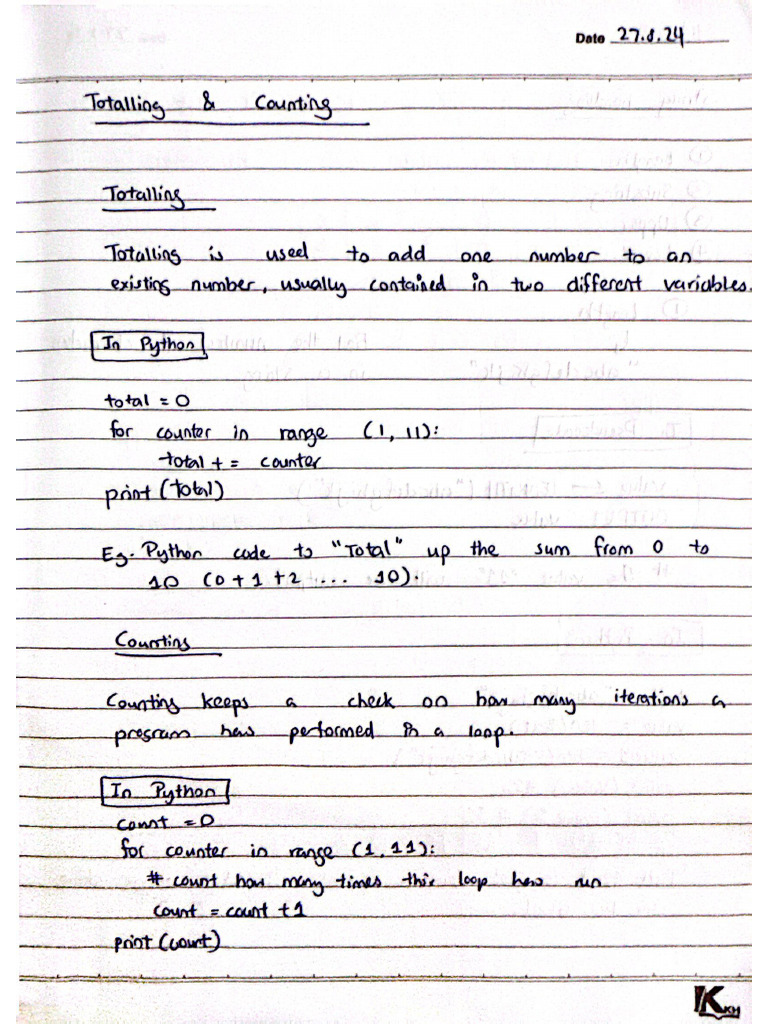 Date 27.8.24
Totalling & Counting
Totalling
Totalling is used to add one number to an
existing number, usually contained in two different variables.
In Python
total = 0
for counter in range (1, 11):
total += counter
print (total)
Eg. Python code to "Total" up the sum from 0 to
10 (0 + 1 + 2 ... 10).
Counting
Counting keeps a check on how many iterations a
program has performed in a loop.
In Python
count = 0
for counter in range (1, 11):
# count how many times this loop has run
count = count + 1
print (count)
KKH